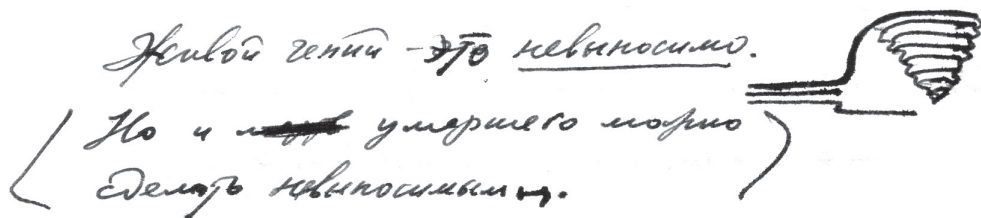 Живой гений – это невыносимо.
(Но и умершего можно
сделать невыносимым.)